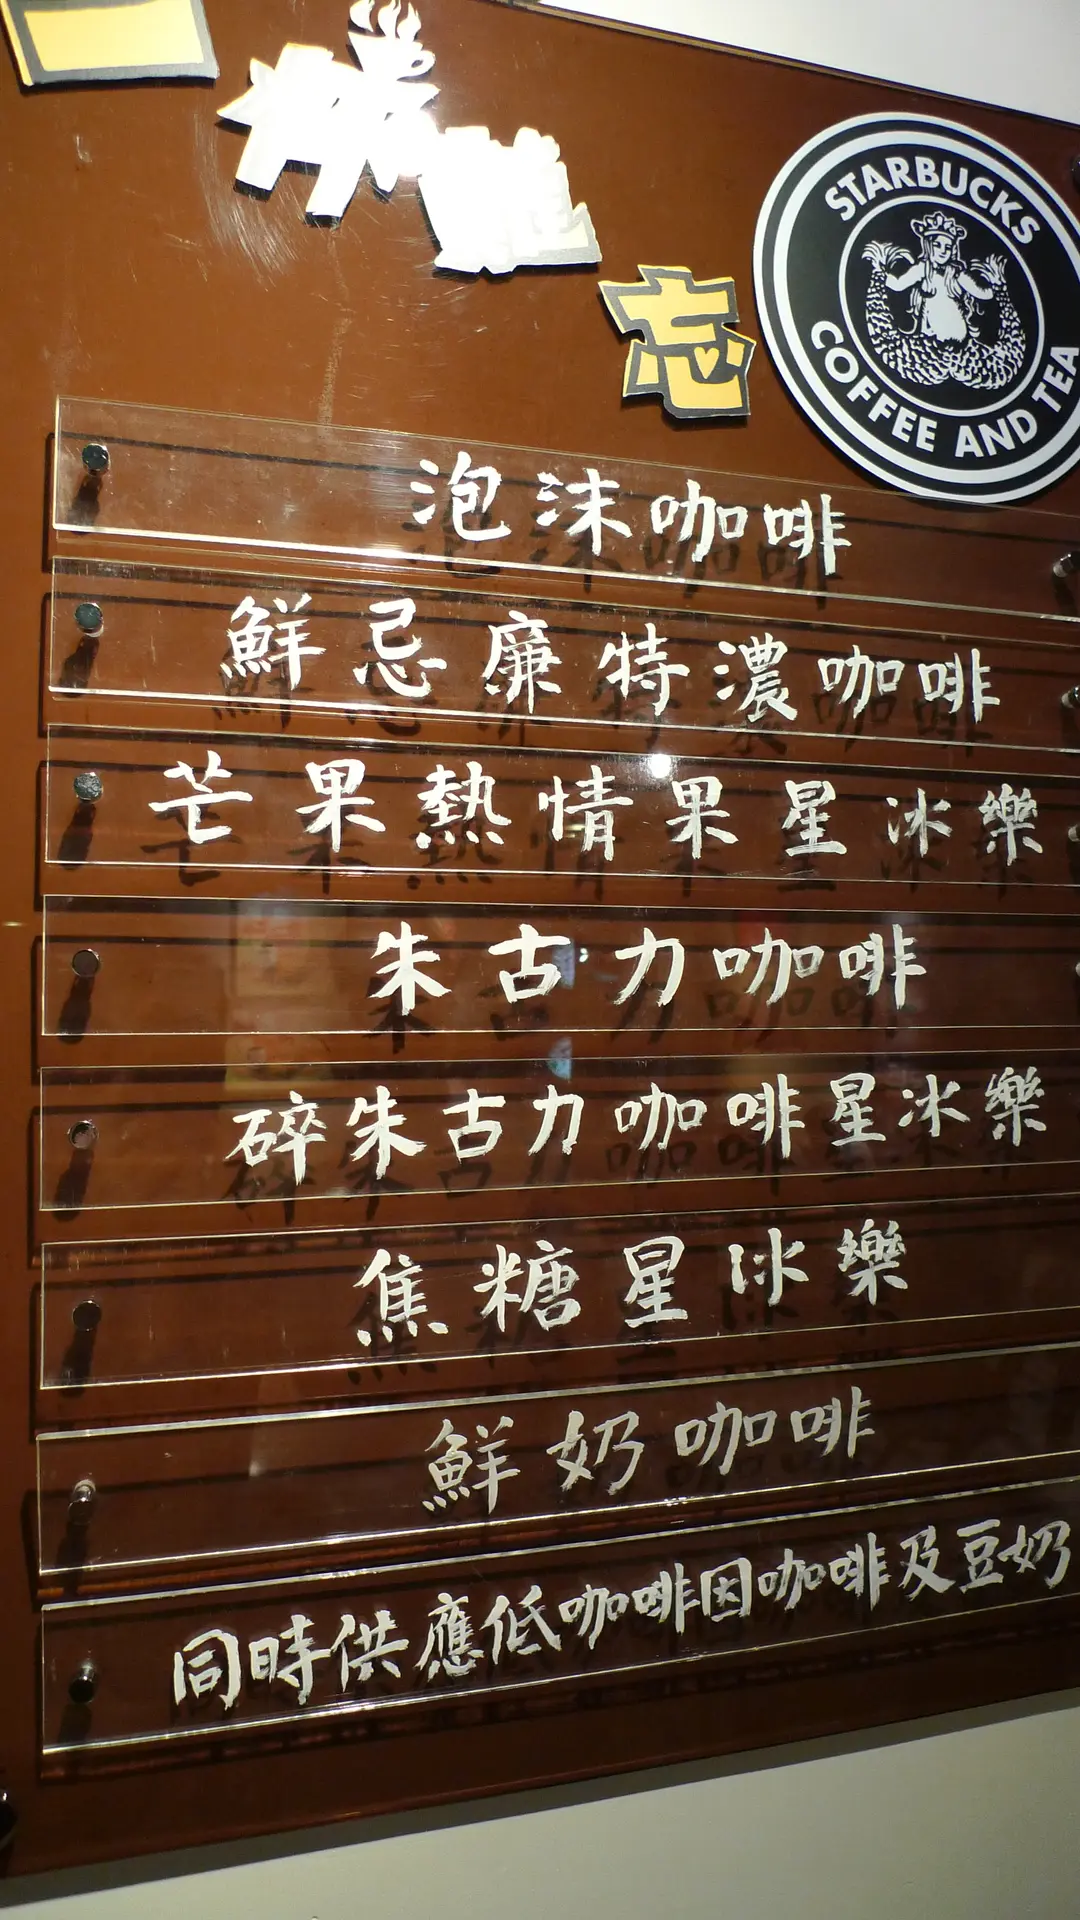 一杯難忘
STARBUCKS
COFFEE AND TEA
泡沫咖啡
鮮忌廉特濃咖啡
芒果熱情果星冰樂
朱古力咖啡
碎朱古力咖啡星冰樂
焦糖星冰樂
鮮奶咖啡
同時供應低咖啡因咖啡及豆奶